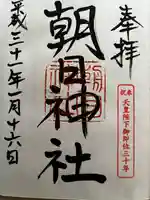 奉拝
奉祝
天皇陛下御即位三十年
朝日神社
平成三十一年一月十六日